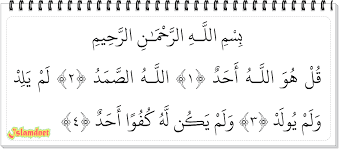 بِسْمِ اللَّـهِ الرَّحْمَـٰنِ الرَّحِيمِ
قُلْ هُوَ اللَّـهُ أَحَدٌ ﴿١﴾ اللَّـهُ الصَّمَدُ ﴿٢﴾ لَمْ يَلِدْ
وَلَمْ يُولَدْ ﴿٣﴾ وَلَمْ يَكُن لَّهُ كُفُوًا أَحَدٌ ﴿٤﴾
islamdoet